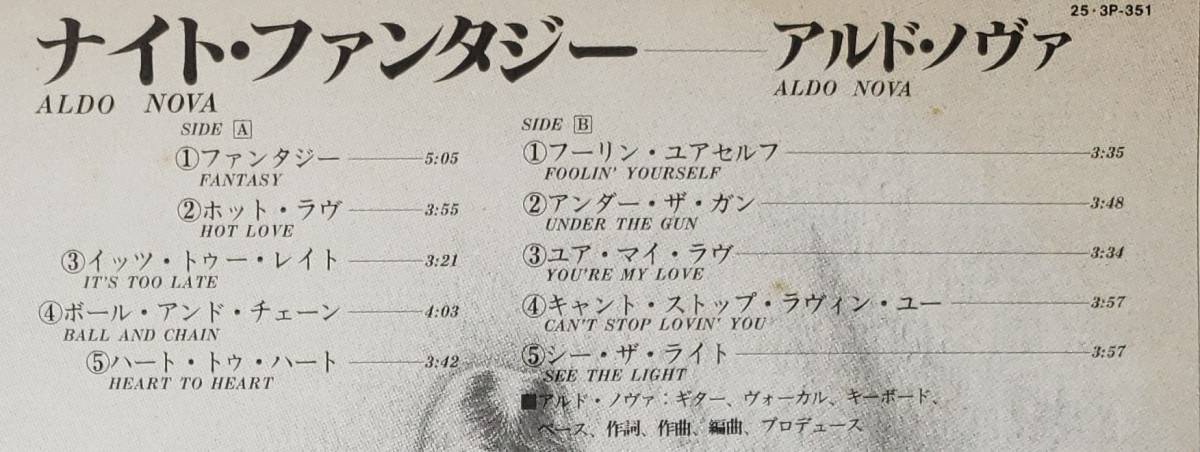 25・3P-351
ナイト・ファンタジー──アルド・ノヴァ
ALDO NOVA
ALDO NOVA
SIDE A
①ファンタジー──5:05
FANTASY
②ホット・ラヴ──3:55
HOT LOVE
③イッツ・トゥー・レイト──3:21
IT'S TOO LATE
④ボール・アンド・チェーン──4:03
BALL AND CHAIN
⑤ハート・トゥ・ハート──3:42
HEART TO HEART
SIDE B
①フーリン・ユアセルフ──3:35
FOOLIN' YOURSELF
②アンダー・ザ・ガン──3:48
UNDER THE GUN
③ユア・マイ・ラヴ──3:34
YOU'RE MY LOVE
④キャント・ストップ・ラヴィン・ユー──3:57
CAN'T STOP LOVIN' YOU
⑤シー・ザ・ライト──3:57
SEE THE LIGHT
■アルド・ノヴァ：ギター、ヴォーカル、キーボード、
ベース、作詞、作曲、編曲、プロデュース